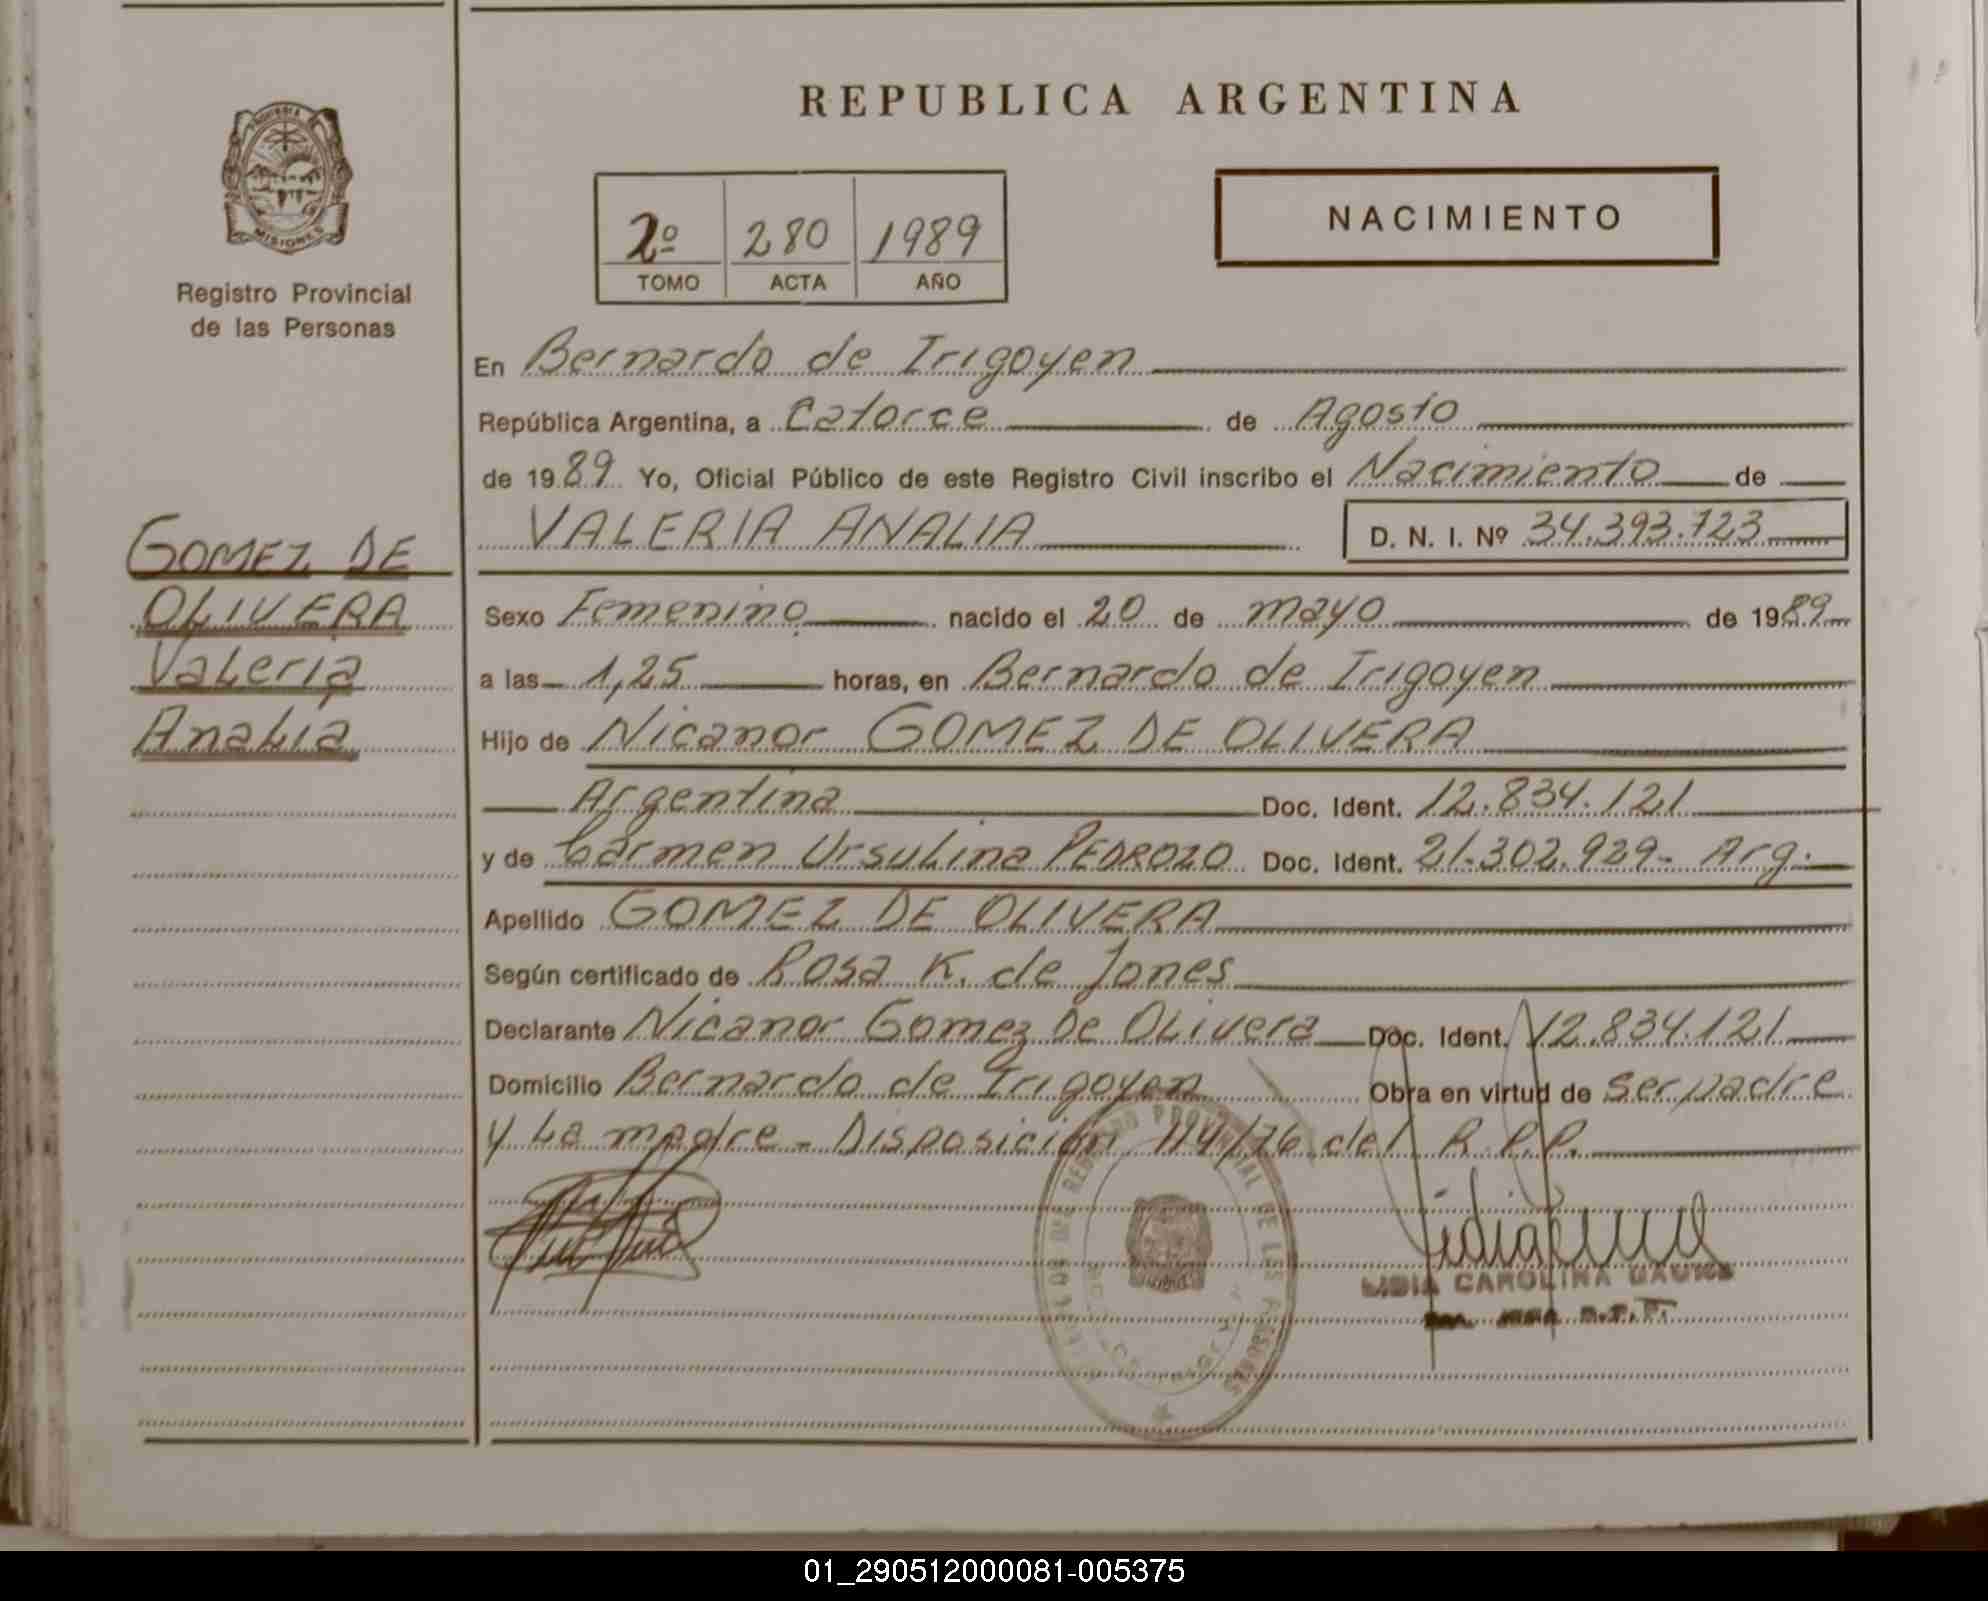 REPUBLICA ARGENTINA
MISIONES
Registro Provincial
de las Personas
2º 280 1989
TOMO ACTA AÑO
NACIMIENTO
GOMEZ DE
OLIVERA
Valeria
Analia
En Bernardo de Irigoyen
República Argentina, a Catorce de Agosto
de 1989 Yo, Oficial Público de este Registro Civil inscribo el Nacimiento de
VALERIA ANALIA D. N. I. Nº 34.393.723
Sexo Femenino nacido el 20 de mayo de 1989
a las 1,25 horas, en Bernardo de Irigoyen
Hijo de Nicanor GOMEZ DE OLIVERA
Argentina Doc. Ident. 12.834.121
y de Carmen Ursulina PEDROZO Doc. Ident. 21.302.929- Arg.
Apellido GOMEZ DE OLIVERA
Según certificado de Rosa K. de Jones
Declarante Nicanor Gomez De Olivera Doc. Ident. 12.834.121
Domicilio Bernardo de Irigoyen Obra en virtud de ser padre
y La madre - Disposición 114/76 del R.P.P.
LIDIA CAROLINA
01_290512000081-005375